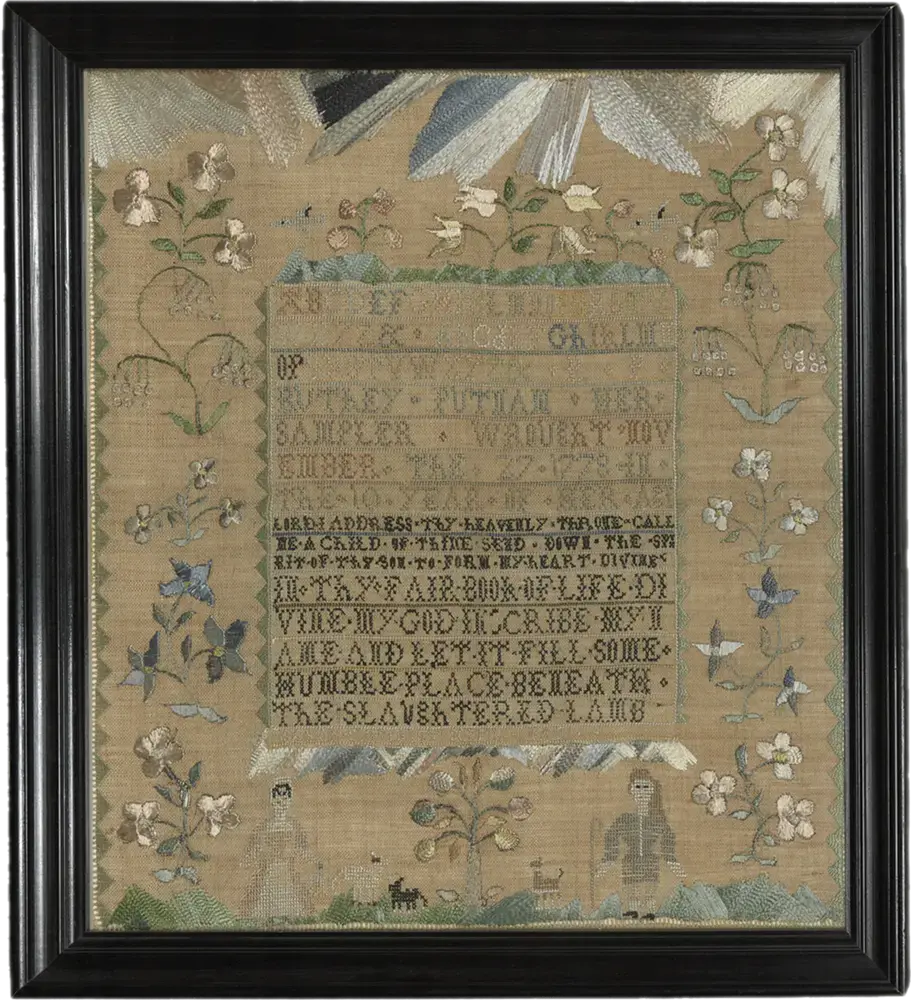 AB DEF
& GHIKLM
OP VW
RUTHEY · PUTNAM · HER ·
SAMPLER · WROUGHT · NOV
EMBER · THE · 27 · 1778 · IN ·
THE · 10 · YEAR · OF · HER · AG
LORD I ADDRESS · THY · HEAVENLY · THRONE · CALL
ME · A CHILD · OF THINE SEND · DOWN · THE · SPI
RIT · OF · THY · SON · TO · FORM · MY · HEART · DIVINE
IN · THY · FAIR · BOOK · OF · LIFE · DI
VINE · MY · GOD INSCRIBE · MY · N
AME · AND LET · IT · FILL · SOME ·
HUMBLE · PLACE · BENEATH ·
THE · SLAUGHTERED · LAMB